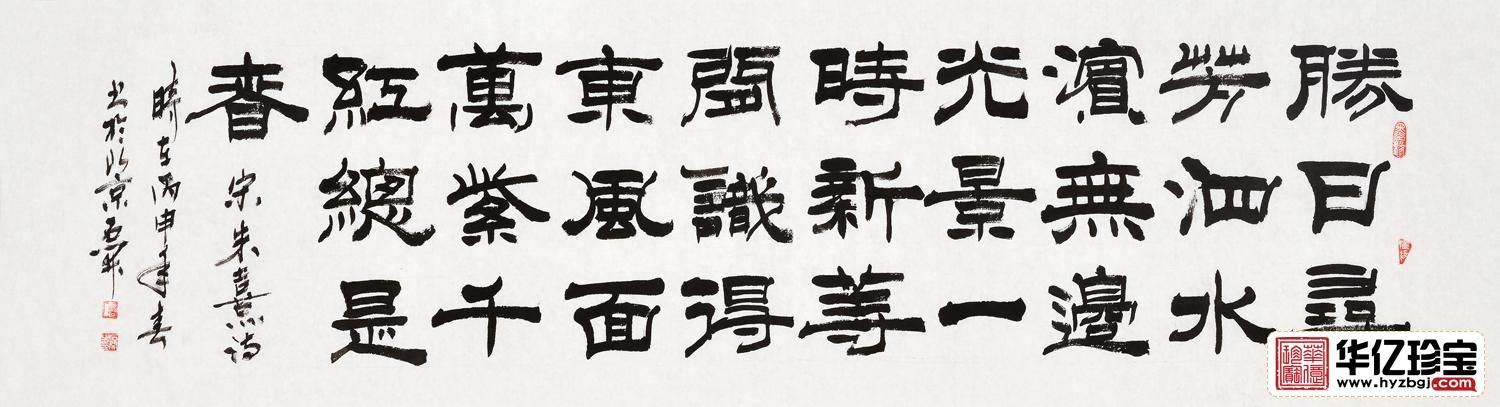 勝日尋
芳泗水
濱無邊
光景一
時新等
間識得
東風面
萬紫千
紅總是
春 宋朱熹詩
時在丙申年春
书於北京
华亿珍宝
www.hyzbgj.com